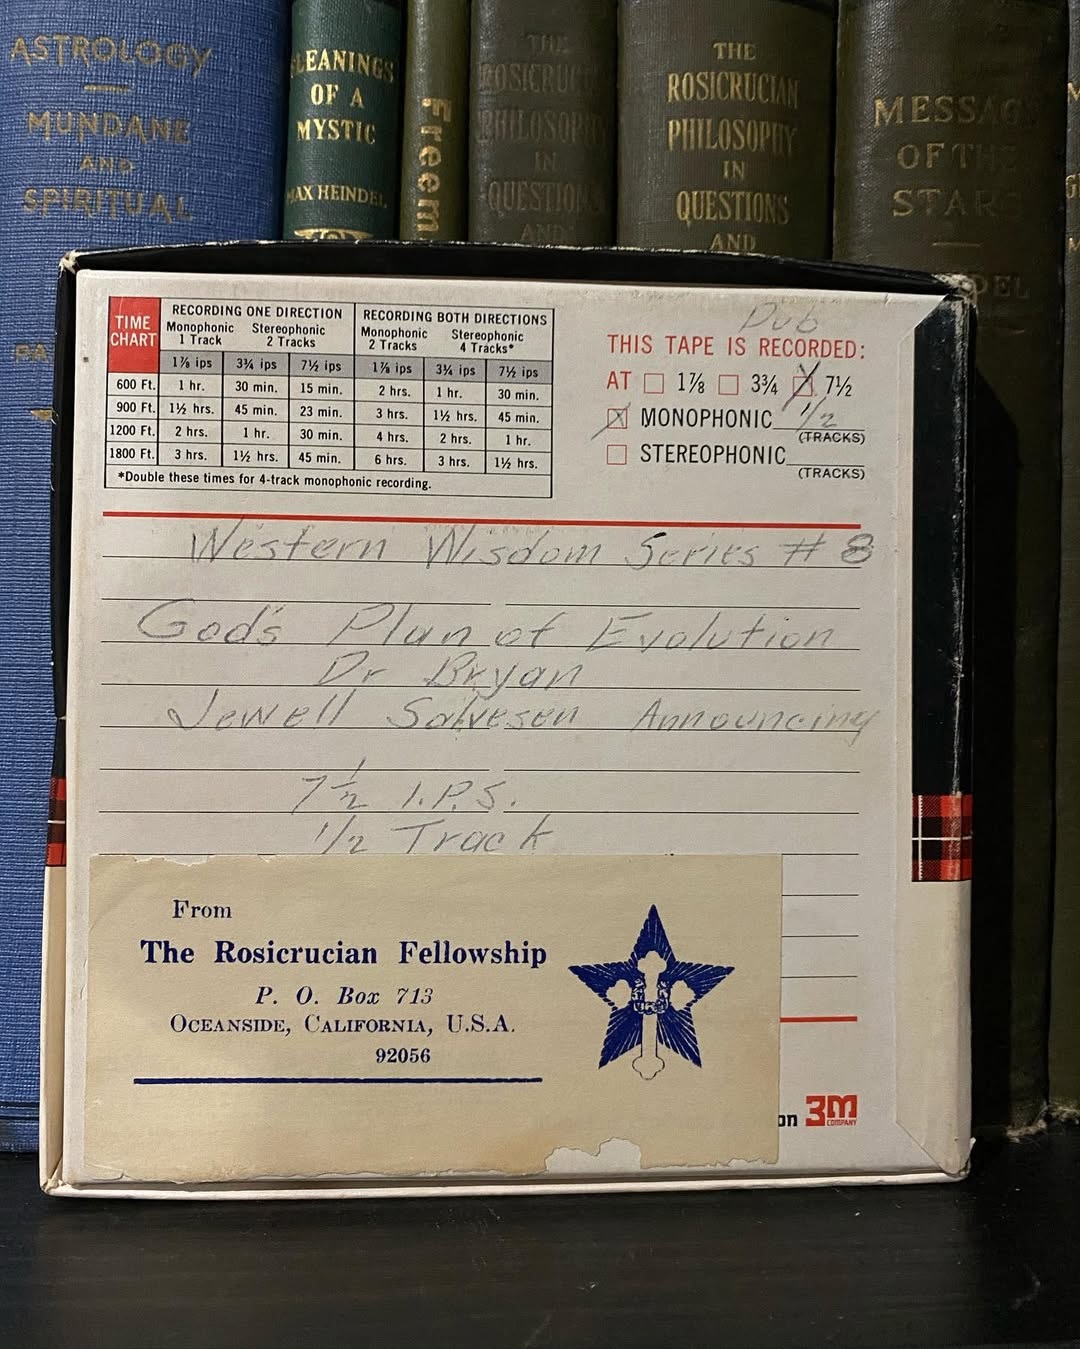 ASTROLOGY
MUNDANE
AND
SPIRITUAL
PA
LEANINGS
OF A
MYSTIC
MAX HEINDEL
Freem
THE
ROSICRUC
PHILOSOPHY
IN
QUESTIONS
AND
THE
ROSICRUCIAN
PHILOSOPHY
IN
QUESTIONS
AND
MESSAG
OF THE
STARS
DEL
TIME CHART
RECORDING ONE DIRECTION RECORDING BOTH DIRECTIONS
Monophonic 1 Track Stereophonic 2 Tracks Monophonic 2 Tracks Stereophonic 4 Tracks*
1⅞ ips 3¾ ips 7½ ips 1⅞ ips 3¾ ips 7½ ips
600 Ft. 1 hr. 30 min. 15 min. 2 hrs. 1 hr. 30 min.
900 Ft. 1½ hrs. 45 min. 23 min. 3 hrs. 1½ hrs. 45 min.
1200 Ft. 2 hrs. 1 hr. 30 min. 4 hrs. 2 hrs. 1 hr.
1800 Ft. 3 hrs. 1½ hrs. 45 min. 6 hrs. 3 hrs. 1½ hrs.
*Double these times for 4-track monophonic recording.
Dub
THIS TAPE IS RECORDED:
AT 1⅞ 3¾ 7½
MONOPHONIC 1/2
(TRACKS)
STEREOPHONIC
(TRACKS)
Western Wisdom Series # 8
God's Plan of Evolution
Dr Bryan
Jewell Salvesen Announcing
7½ I.P.S.
1/2 Track
From
The Rosicrucian Fellowship
P. O. Box 713
OCEANSIDE, CALIFORNIA, U.S.A.
92056
on 3M
COMPANY